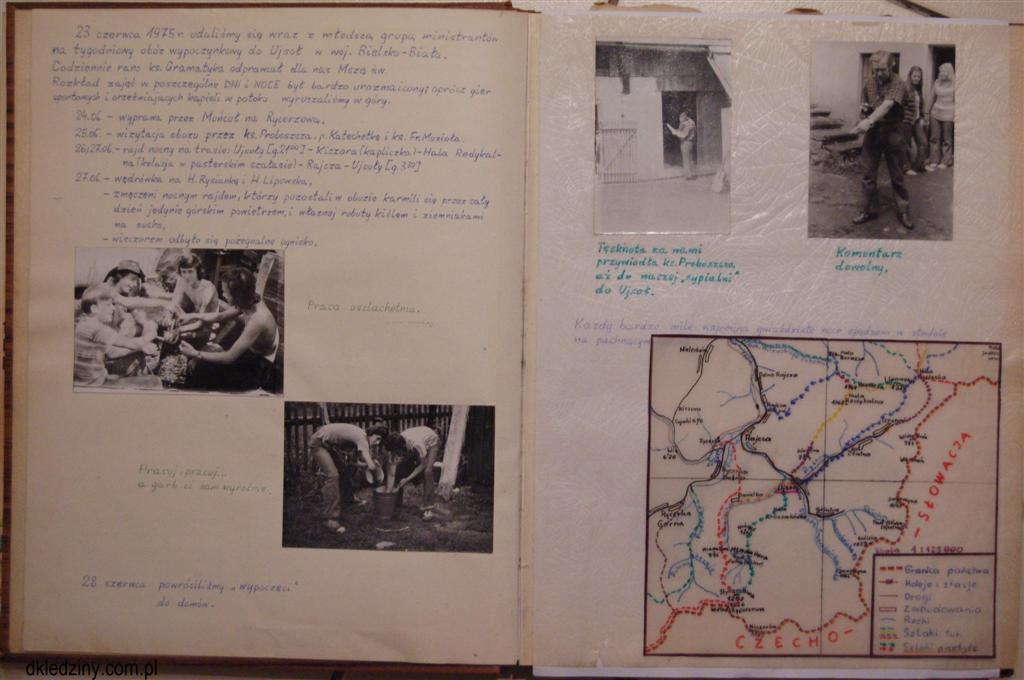 23 czerwca 1975r. udaliśmy się wraz z młodszą grupą ministrantów
na tygodniowy obóz wypoczynkowy do Ujsoł w woj. Bielsko-Biała.
Codziennie rano ks. Gramatyka odprawiał dla nas Mszę św.
Rozkład zajęć w poszczególne DNI i NOCE był bardzo urozmaicony; oprócz gier
sportowych i orzeźwiających kąpieli w potoku wyruszaliśmy w góry.
24.06. - wyprawa przez Muńcuł na Rycerzową,
25.06. - wizytacja obozu przez ks. Proboszcza, p. Katechetkę i ks. Fr. Mozioła.
26/27.06. - rajd nocny na trasie: Ujsoły [g. 21⁰⁰] - Kiczora (kapliczka) - Hala Redykal-
na (kolacja w pasterskim szałasie) - Rajcza - Ujsoły [g. 3³⁰]
27.06. - wędrówka na H. Rysiankę i H. Lipowską,
- zmęczeni nocnym rajdem, którzy pozostali w obozie karmili się przez cały
dzień jedynie górskim powietrzem, i własnej roboty kiślem i ziemniakami
na sucho,
- wieczorem odbyło się pożegnalne ognisko.
Praca uszlachetnia.
Pracuj, pracuj...
a garb ci sam wyrośnie.
28 czerwca powróciliśmy „wypoczęci"
do domów.
Tęsknota za nami
przywiodła ks. Proboszcza
aż do naszej „sypialni"
do Ujsoł.
Komentarz
dowolny.
Każdy bardzo mile wspomina gwiaździste noce spędzone w stodole
na pachnącym
Rajcza
Rycerka
Górna
SŁOWACJA
CZECHO-
Skala 1:125 000
Granica państwa
Koleje i stacje
Drogi
Zabudowania
Rzeki
Szlaki tur.
Szlaki przebyte
dkledziny.com.pl